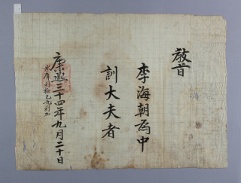 敎旨
李海朝爲中
訓大夫者
康熙三十四年九月二十日